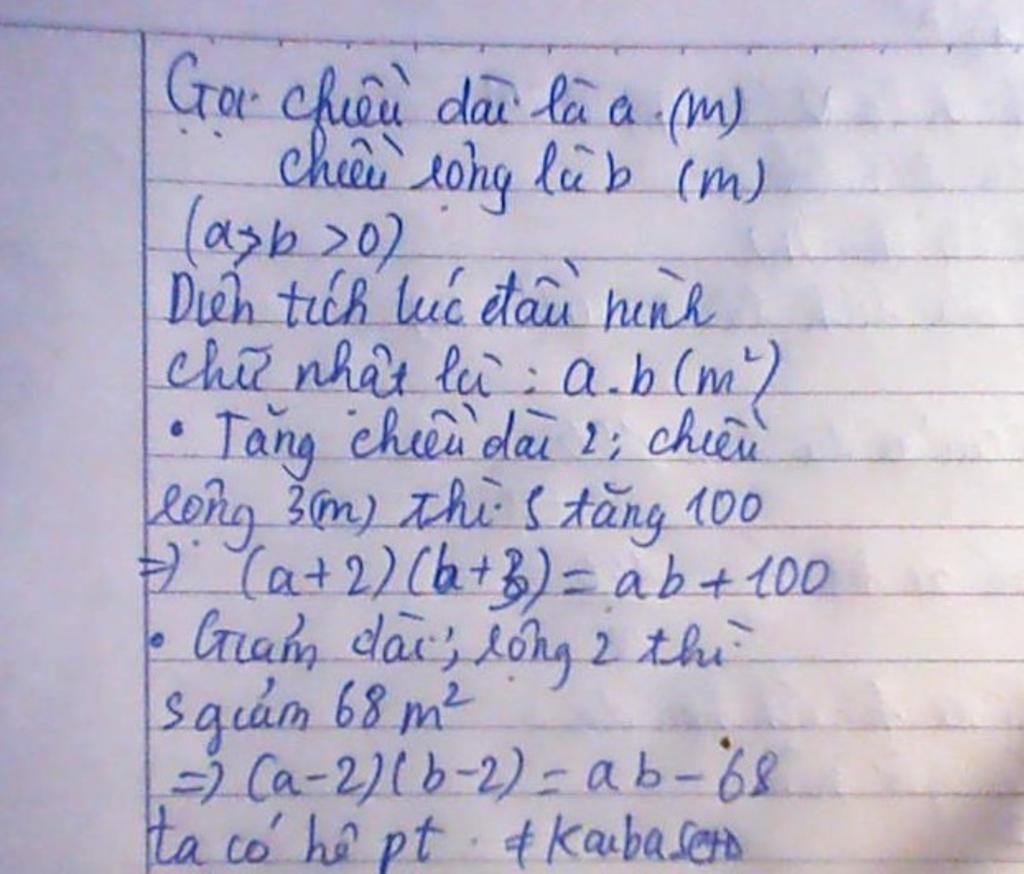 Gọi chiều dài là a (m)
chiều rộng là b (m)
(a>b >0)
Diện tích lúc đầu hình
chữ nhật là : a.b (m²)
• Tăng chiều dài 2; chiều
rộng 3(m) thì S tăng 100
=> (a+2)(b+3)= ab+100
• Giảm dài; rộng 2 thì
S giảm 68 m²
=> (a-2)(b-2)= ab-68
ta có hệ pt